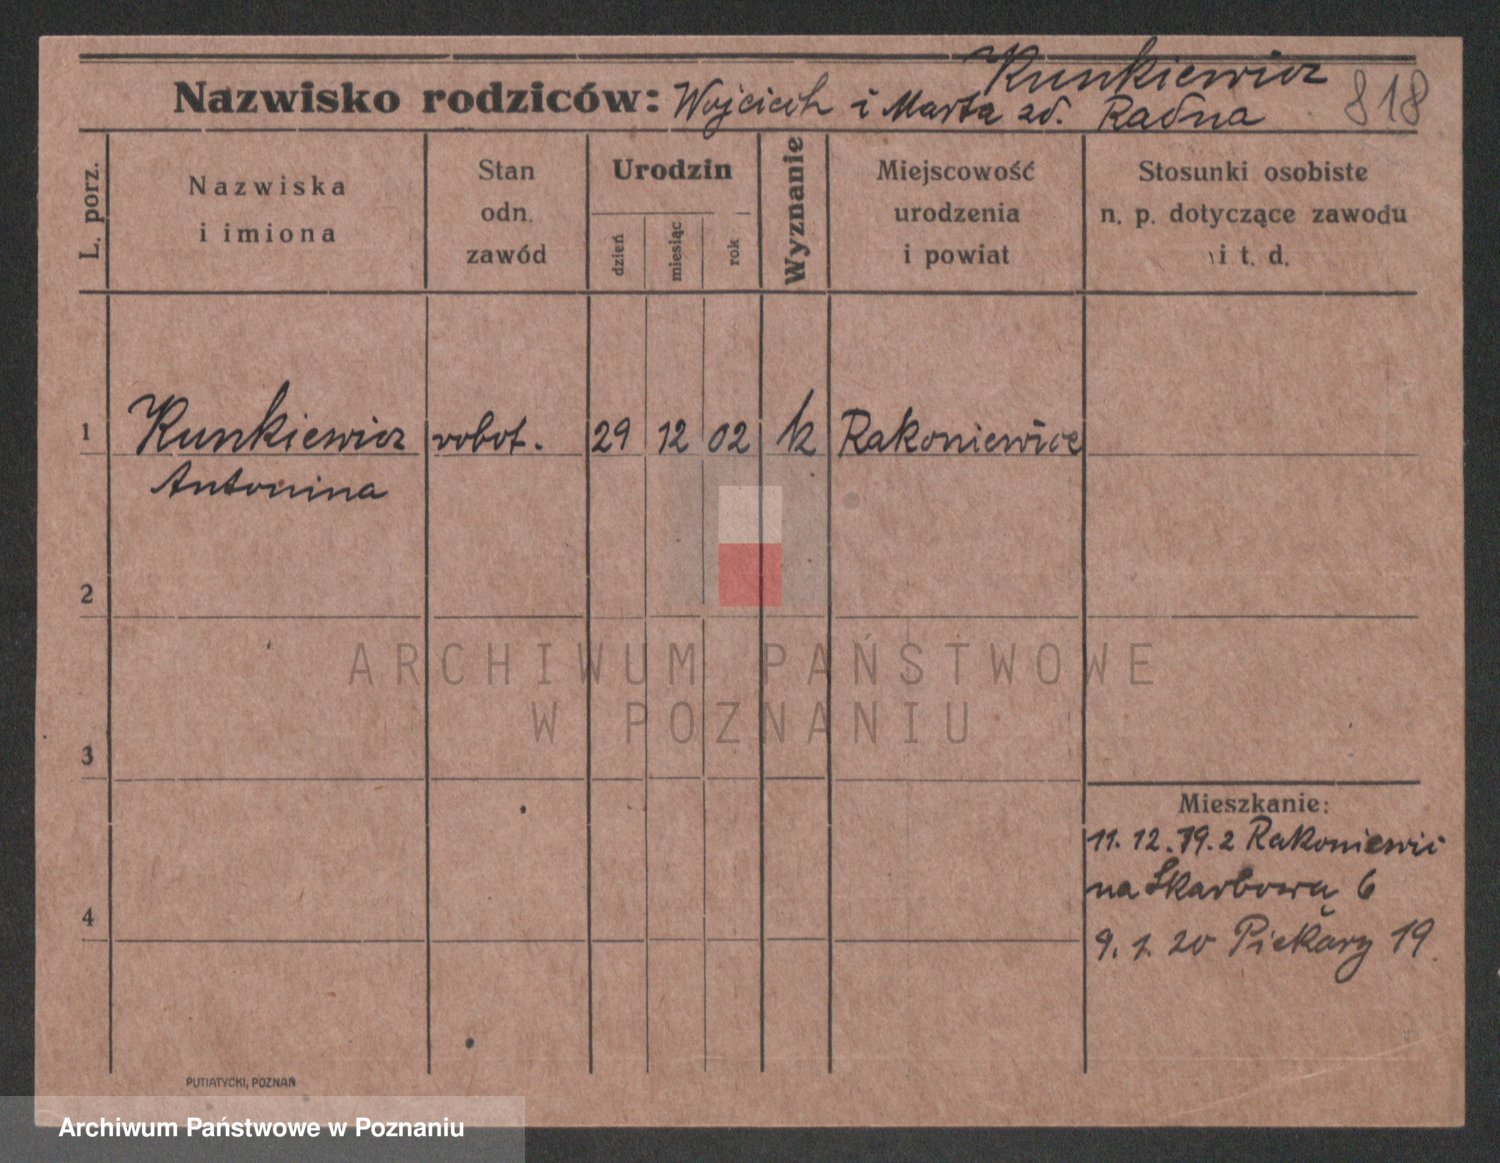 Kunkiewicz
Nazwisko rodziców: Wojciech i Marta zd. Radna
818
L. porz.
Nazwiska
i imiona
Stan
odn.
zawód
Urodzin
dzień
miesiąc
rok
Wyznanie
Miejscowość
urodzenia
i powiat
Stosunki osobiste
n. p. dotyczące zawodu
i t. d.
1 Kunkiewicz robot. 29 12 02 k Rakoniewice
Antonina
2
ARCHIWUM PAŃSTWOWE
W POZNANIU
3
Mieszkanie:
11. 12. 19. z Rakoniewic
na Skarbową 6
4
9. 1. 20 Piekary 19.
PUTIATYCKI, POZNAŃ
Archiwum Państwowe w Poznaniu